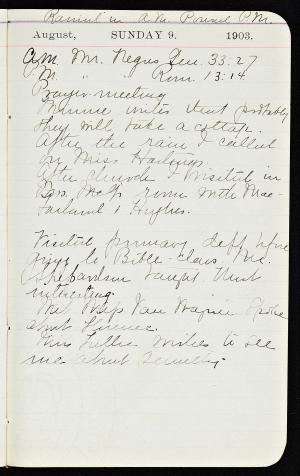 Rained in A.M. Poured P.M.
August, SUNDAY 9. 1903.
A.M. Mr. Negus Gen. 33:27
M. " " Rom. 13:14
Prayer-meeting
Minnie writes that probably
they will take a cottage.
After the rain I called
on Miss Hastings.
After church I visited in
room with Mac-
Farland & Hughes.
Visited primary dep't before
going to Bible-class. Mr.
Shepardson taught. Most
interesting.
Met Miss Van Wagner. Spoke
about Florence.
Miss Luther wishes to see
me about